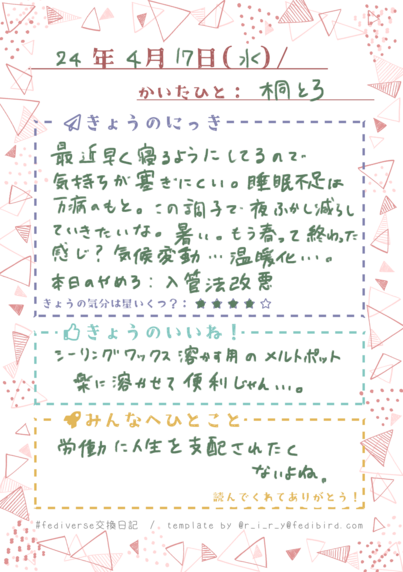 24年4月17日(水)/
かいたひと：桐とろ
きょうのにっき
最近早く寝るようにしてるので
気持ちが塞ぎにくい。睡眠不足は
万病のもと。この調子で夜ふかし減らし
ていきたいな。暑い。もう春って終わった
感じ？気候変動…温暖化…。
本日のやめろ：入管法改悪
きょうの気分は星いくつ？：★★★★☆
きょうのいいね！
シーリングワックス溶かす用のメルトポット
楽に溶かせて便利じゃん…。
みんなへひとこと
労働に人生を支配されたく
ないよね。
読んでくれてありがとう！
#fediverse交換日記 /. template by @r_i_r_y@fedibird.com